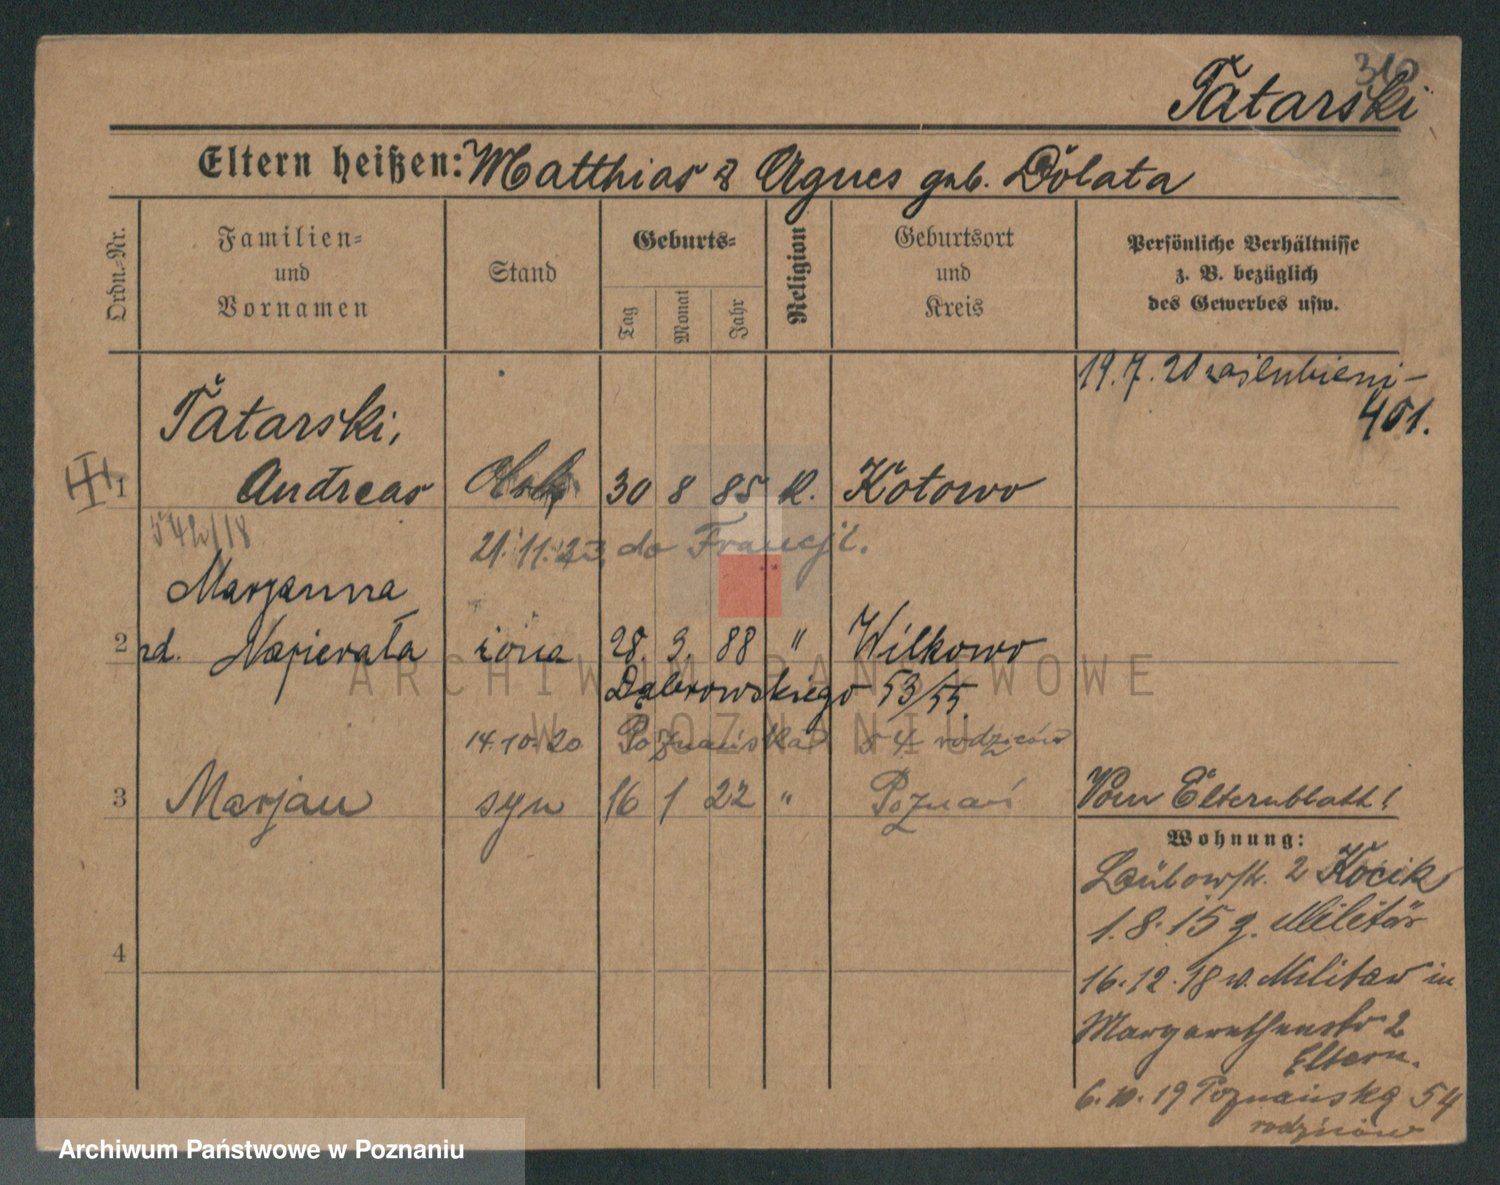 310
Tatarski
Eltern heißen: Matthias & Agnes geb. Dolata
Ordn.-Nr.
Familien-
und
Vornamen
Stand
Geburts-
Tag
Monat
Jahr
Religion
Geburtsort
und
Kreis
Persönliche Verhältnisse
z. B. bezüglich
des Gewerbes usw.
19.7.20 zaślubieni -
401.
Tatarski,
1 Andreas 30 8 85 k. Kotowo
21.11.23 do Francji.
Marjanna
2 rd. Napierała żona 28. 3. 88 " Wilkowo
Dąbrowskiego 53/55
14.10.20 Poznańska 54 rodziców
3 Marjan syn 16 1 22 " Poznań
Vom Elternblatt!
Wohnung:
2 Kocik
1.8.15 z. Militär
4
16.12.18 v. Militär in
Margarethenstr 2
Eltern.
6.10.19 Poznańska 54
rodziców
ARCHIWUM PAŃSTWOWE
W POZNANIU
Archiwum Państwowe w Poznaniu